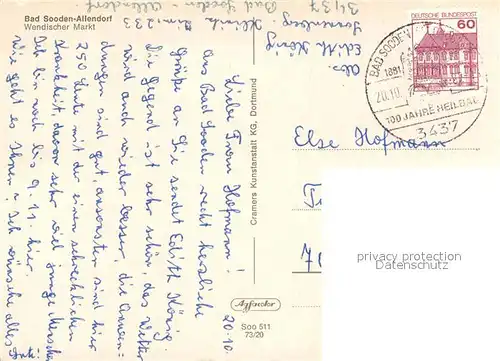 Bad Sooden-Allendorf
Wendischer Markt
Abs.
Edith König
Sonnenberg-Klinik
3437
Bad Sooden-Allendorf
20.10
Liebe Frau Hofmann!
Aus Bad Sooden recht herzliche
Grüße an Sie sendet Edith König.
Die Gegend ist sehr schön, das Wetter
wird auch wieder besser, die Anwen-
dungen sind gut, ansonsten sind hier
250 Leute mit der einen schrecklichen
Krankheit, davon sehr viel junge Menschen
Ich bin noch bis 9.11. hier.
Wie geht es Ihnen? Ich wünsche alles
Cramers Kunstanstalt KG, Dortmund
Agfacolor
Soo 511
73/20
DEUTSCHE BUNDESPOST
60
BAD SOODEN
1881
20.10.
100 JAHRE HEILBAD
3437
Else Hofmann
privacy protection